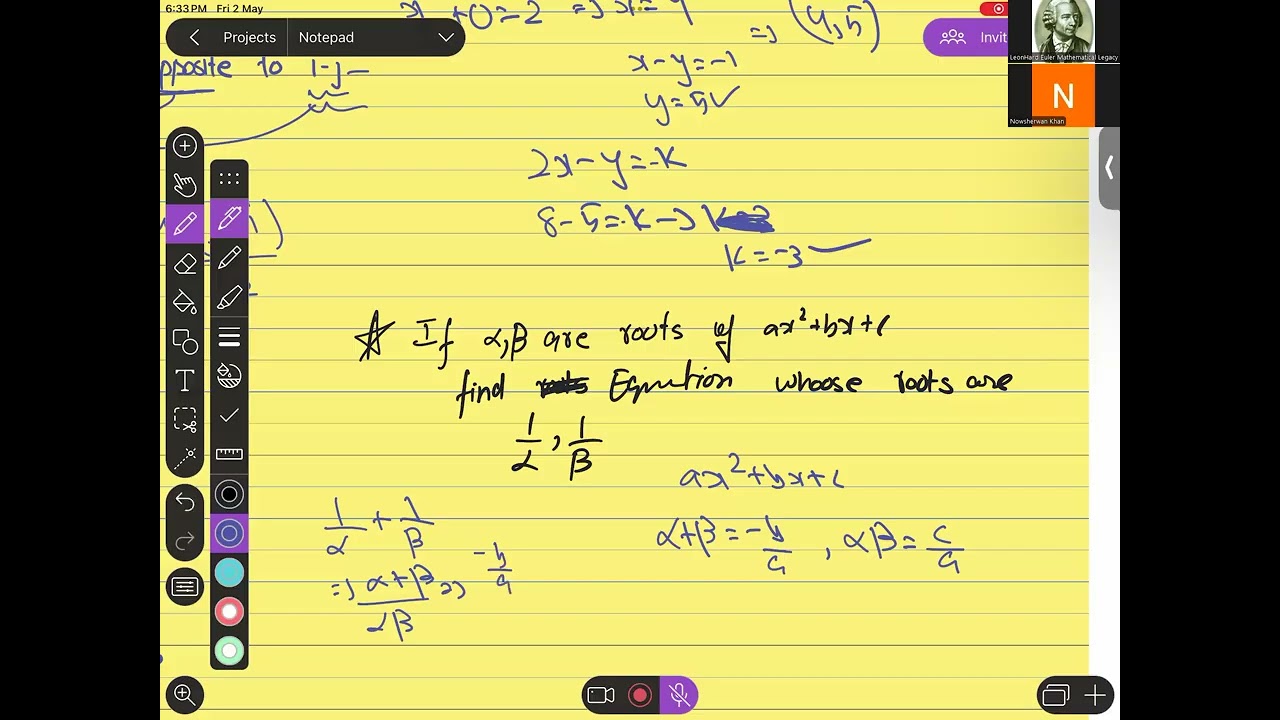 6:33 PM Fri 2 May
x +0=2 => x=4
=> (4,5)
Projects
Notepad
Invit
LeonHard Euler Mathematical Legacy
N
Nowsherwan Khan
pposite to 1-j
x-y=-1
y=5✓
2x-y=-k
8-5=-k ->
k=-3
☆ If α,β are roots of ax²+bx+c
find Equation whose roots are
1/α, 1/β
ax²+bx+c
1/α + 1/β
α+β=-b/a, αβ=c/a
=> α+β/αβ => -b/a
T